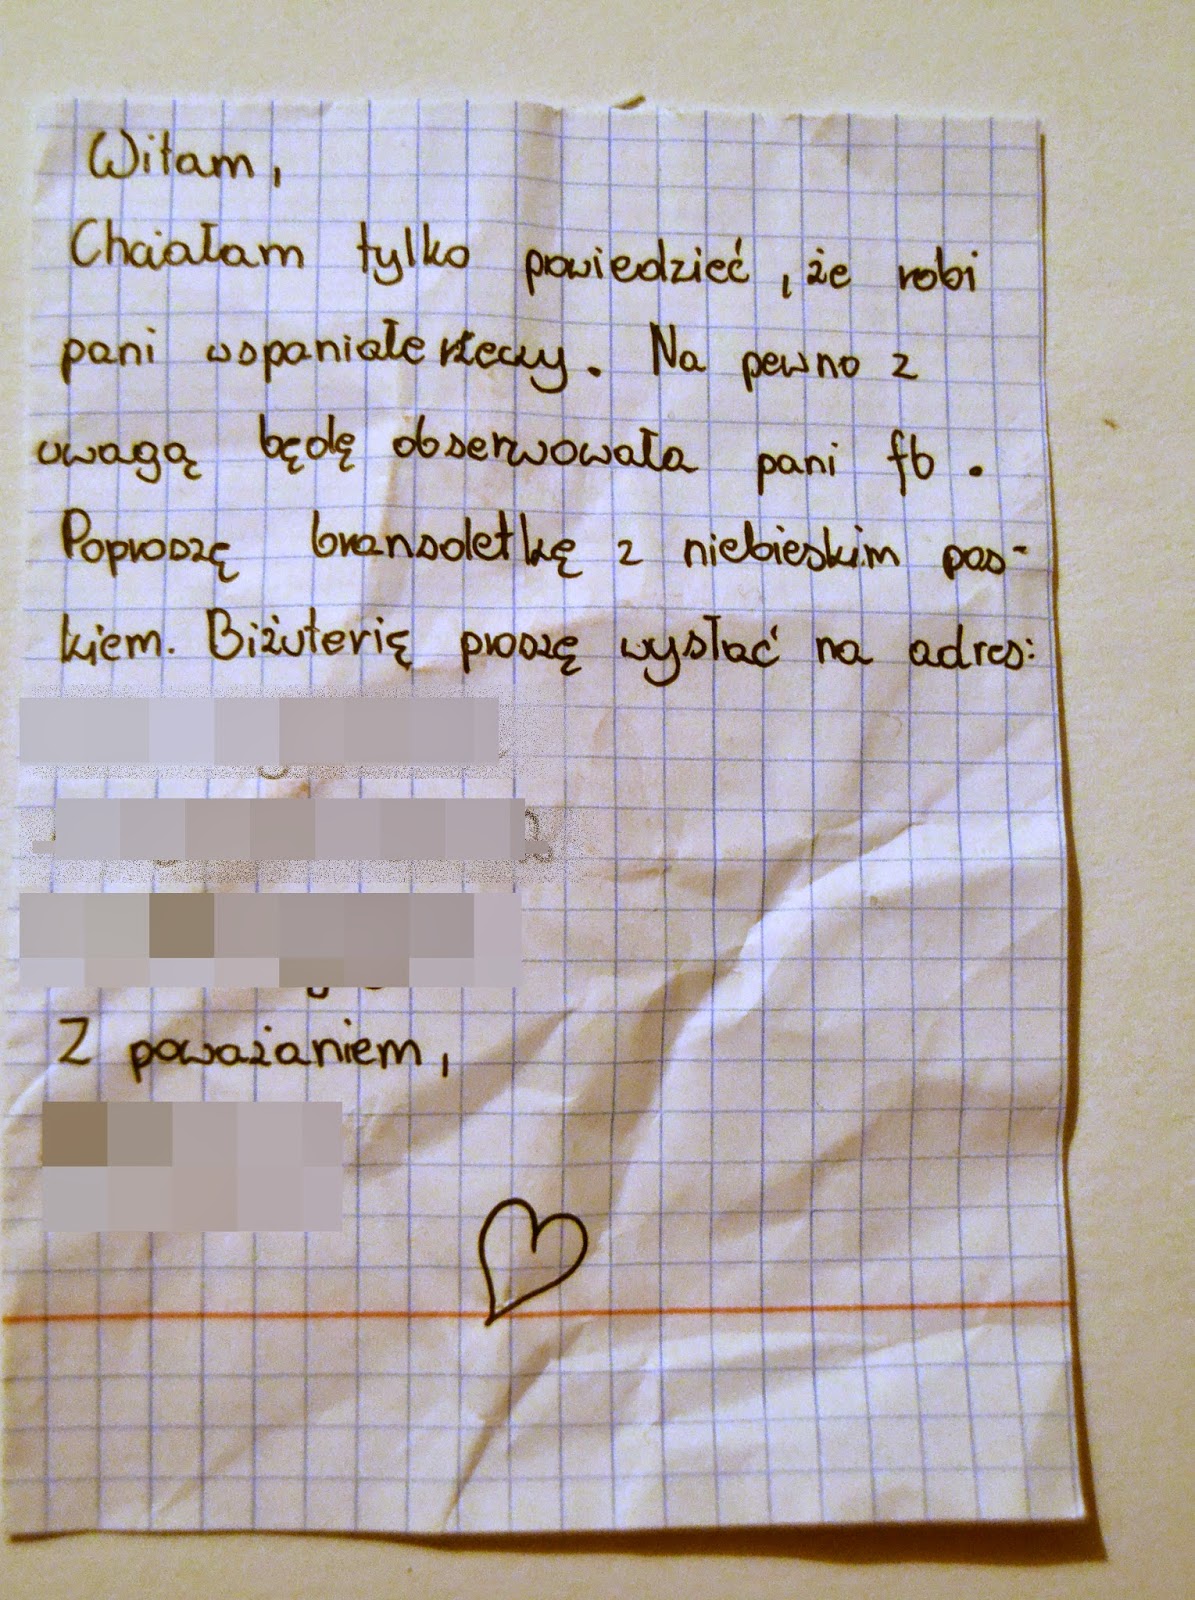 Witam,
Chciałam tylko powiedzieć, że robi
pani wspaniałe rzeczy. Na pewno z
uwagą będę obserwowała pani fb.
Poproszę bransoletkę z niebieskim pas-
kiem. Biżuterię proszę wysłać na adres:
Z poważaniem,